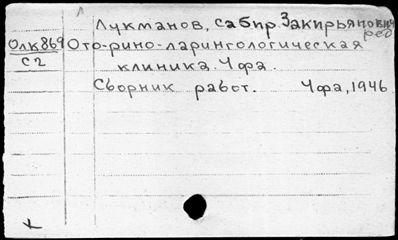 Лукманов, Сабир Закирьянович
ред
Олк869
С2
Ото-рино-ларингологическая
клиника. Уфа.
Сборник работ. Уфа, 1946